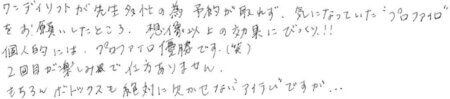 ワンデイリフトが先生多忙の為 予約が取れず、気になっていた"プロファイロ"
をお願いしたところ、想像以上の効果にびっくり!!
個人的には、プロファイロ優勝です。(笑)
2回目が楽しみで仕方ありません。
もちろんボトックスも絶対に欠かせない"アイテム"ですが…